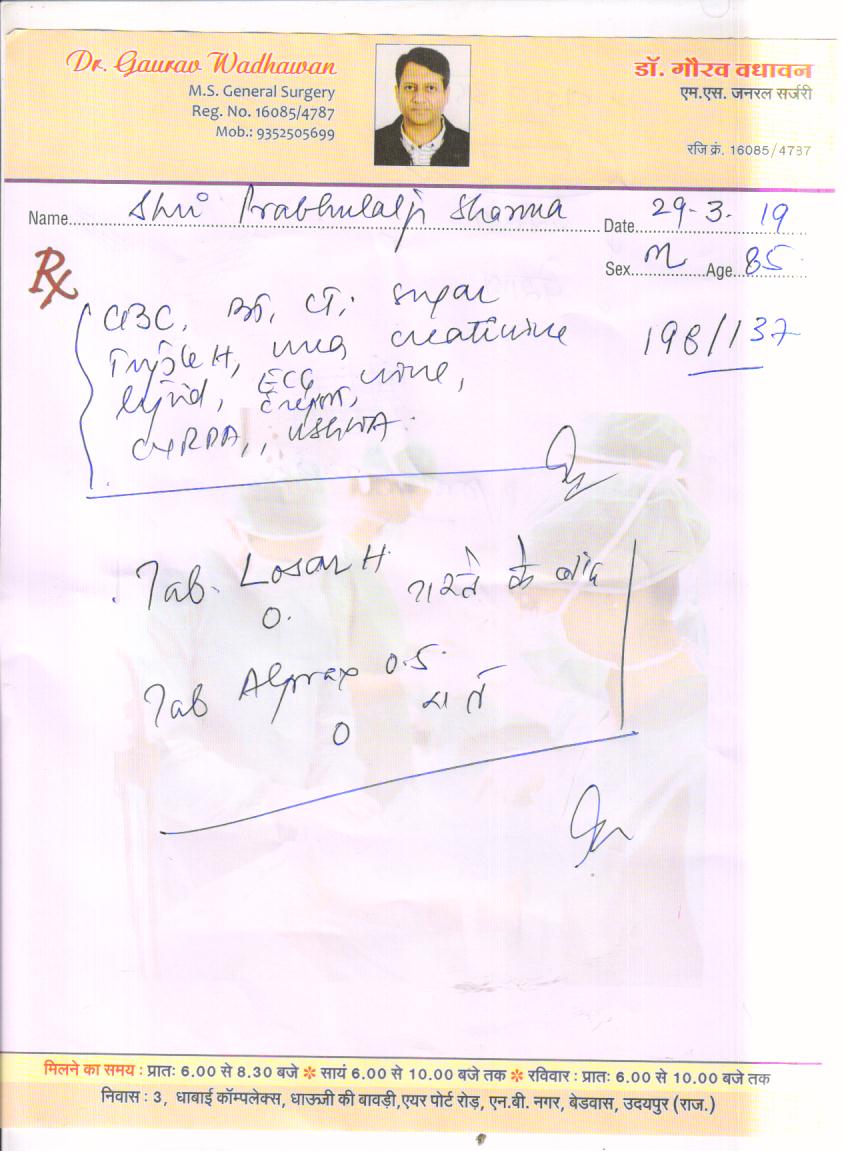 Dr. Gaurav Wadhawan
M.S. General Surgery
Reg. No. 16085/4787
Mob.: 9352505699
डॉ. गौरव वधावन
एम.एस. जनरल सर्जरी
रजि क्रं. 16085/4787
Name Shri Prabhulalji Sharma
Date 29-3-19
Sex M Age 85
Rx
CBC, BT, CT, sugar
Triple H, urea creatinine
lipid, ECG, urine,
CxRPA, USGWA
198/137
Tab. Losar H नाश्ते के बाद
0
Tab Alprax 0.5
0
मिलने का समय : प्रातः 6.00 से 8.30 बजे ✽ सायं 6.00 से 10.00 बजे तक ✽ रविवार : प्रातः 6.00 से 10.00 बजे तक
निवास : 3, धाबाई कॉम्पलेक्स, धाऊजी की बावड़ी,एयर पोर्ट रोड़, एन.बी. नगर, बेडवास, उदयपुर (राज.)